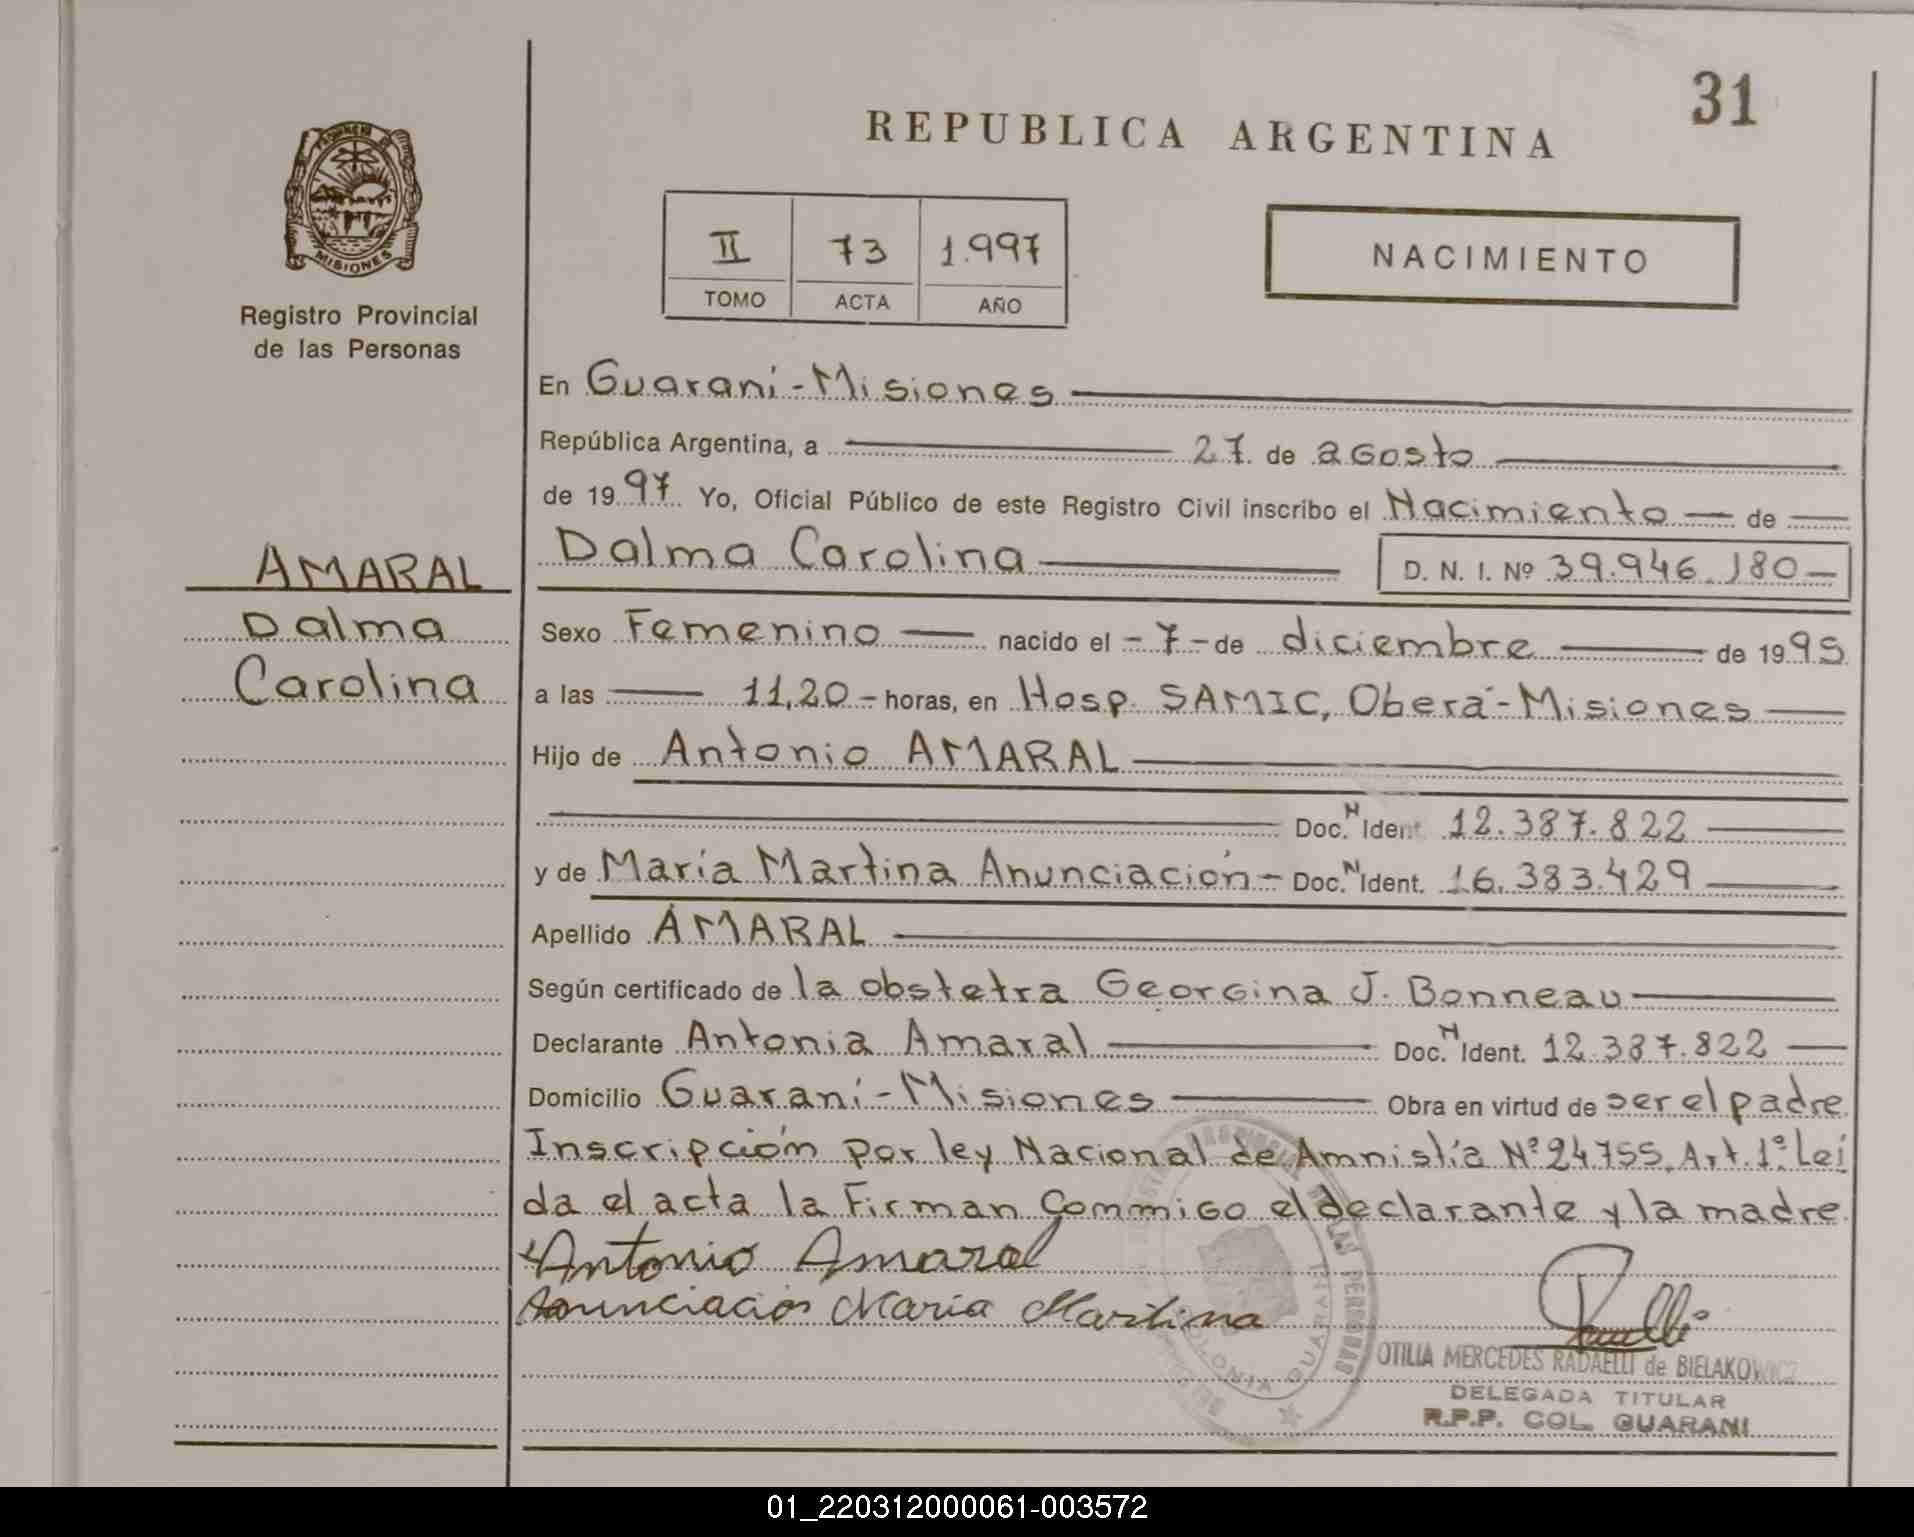 31
REPUBLICA ARGENTINA
MISIONES
Registro Provincial
de las Personas
II 73 1.997
TOMO ACTA AÑO
NACIMIENTO
En Guaraní - Misiones
República Argentina, a 27 de agosto
de 1997 Yo, Oficial Público de este Registro Civil inscribo el Nacimiento de
AMARAL
Dalma
Carolina
Dalma Carolina D. N. I. Nº 39.946.180
Sexo Femenino nacido el - 7 - de diciembre de 1995
a las 11,20 - horas, en Hosp. SAMIC, Oberá - Misiones
Hijo de Antonio AMARAL
Doc. N Ident. 12.387.822
y de María Martina Anunciación - Doc. N Ident. 16.383.429
Apellido AMARAL
Según certificado de la obstetra Georgina J. Bonneau
Declarante Antonia Amaral Doc. N Ident. 12.387.822
Domicilio Guaraní - Misiones Obra en virtud de ser el padre
Inscripción por ley Nacional de Amnistía Nº 24755. Art. 1º. Leí
da el acta la Firman Commigo el declarante y la madre
Antonio Amaral
Anunciación Maria Martina
OTILIA MERCEDES RADAELLI de BIELAKOWICZ
DELEGADA TITULAR
R.P.P. COL. GUARANI
01_220312000061-003572